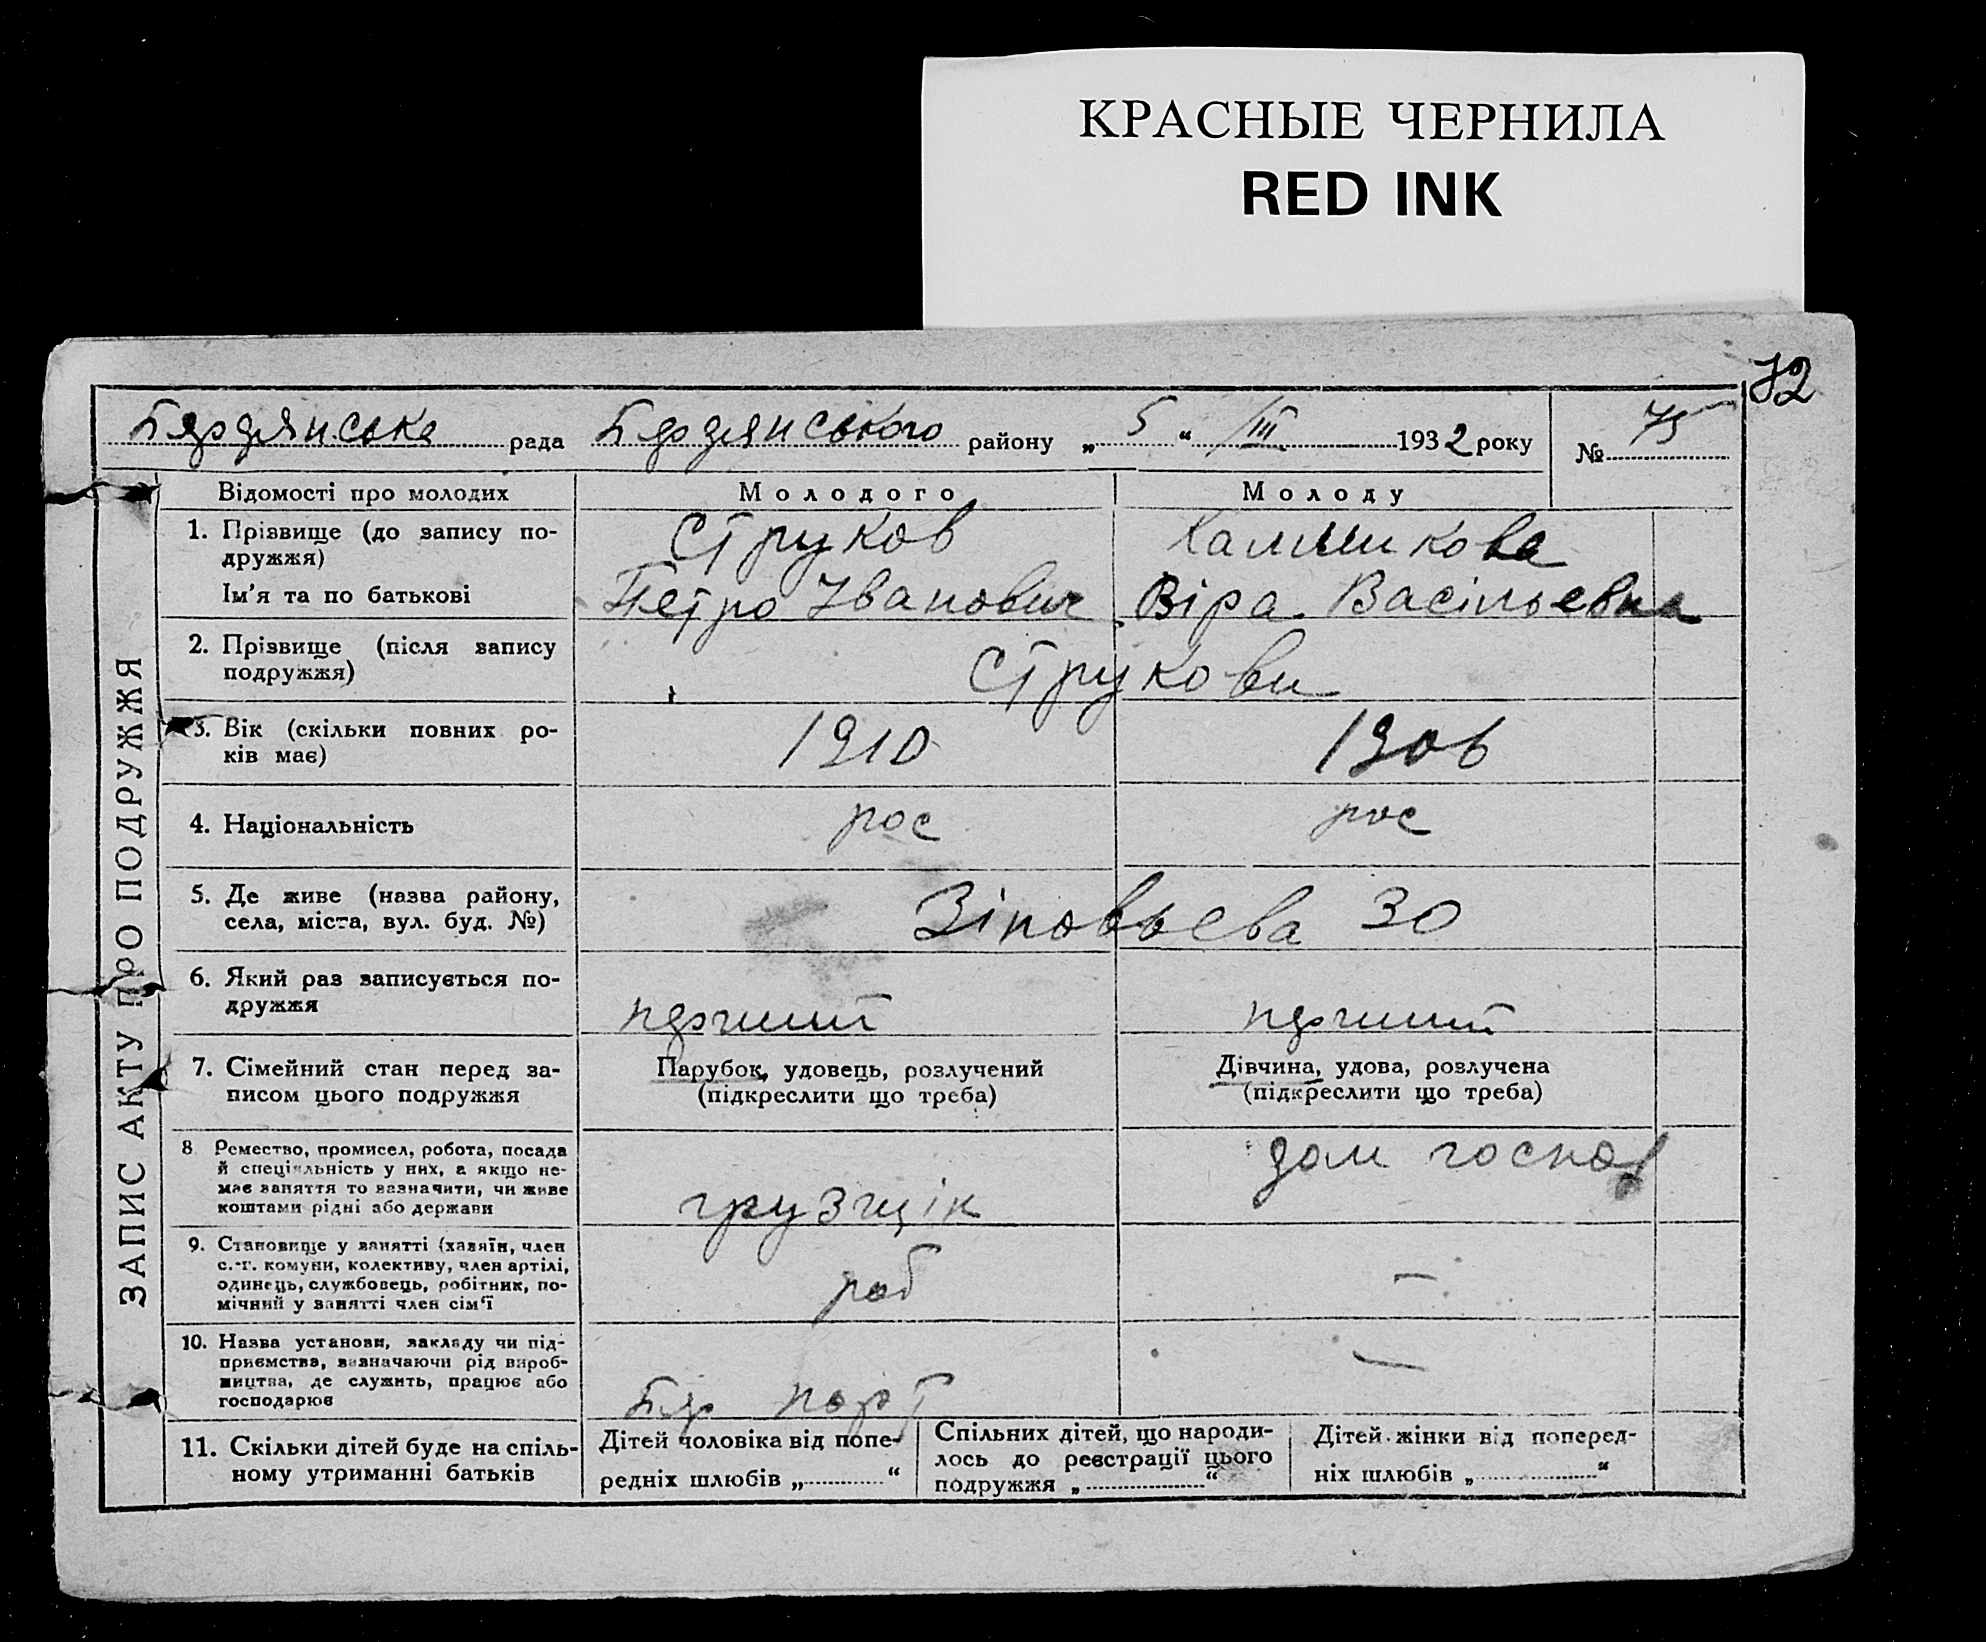 КРАСНЫЕ ЧЕРНИЛА
RED INK
72
Бердянська рада Бердянського району „ 5 “ III 1932 року № 75
ЗАПИС АКТУ ПРО ПОДРУЖЖЯ
Відомості про молодих Молодого Молоду
1. Прізвище (до запису по- Струков
дружжя)
Ім'я та по батькові Петро Іванович Віра Васільевна
2. Прізвище (після запису
подружжя) Струкови
3. Вік (скільки повних ро-
ків має) 1910 1906
4. Національність рос рос
5. Де живе (назва району,
села, міста, вул. буд. №) Зіновьева 30
6. Який раз записується по-
дружжя перший перший
7. Сімейний стан перед за- Парубок, удовець, розлучений Дівчина, удова, розлучена
писом цього подружжя (підкреслити що треба) (підкреслити що треба)
8 Ремество, промисел, робота, посада дом господ
й спеціяльність у них, а якщо не-
має заняття то зазначити, чи живе
коштами рідні або держави грузчщік
9. Становище у занятті (хазяїн, член
с.-г. комуни, колективу, член артілі,
одинець, службовець, робітник, по- роб —
мічний у занятті член сім'ї
10. Назва установи, закладу чи під-
приємства, зазначаючи рід вироб- —
ництва, де служить, працює або
господарює Бер порт
11. Скільки дітей буде на спіль- Дітей чоловіка від попе- Спільних дітей, що народи- Дітей жінки від поперед-
ному утриманні батьків редніх шлюбів „ “ лось до реєстрації цього ніх шлюбів „ “
подружжя „ “